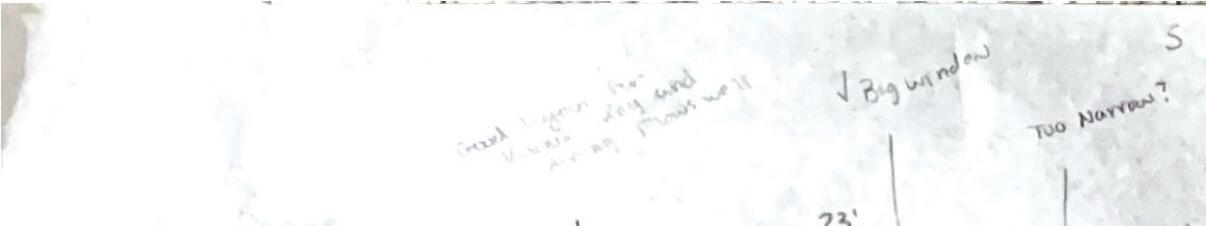 S
↓ Big window
Too Narrow?
Good layout for
Kitchen and
dining Flows well
23'